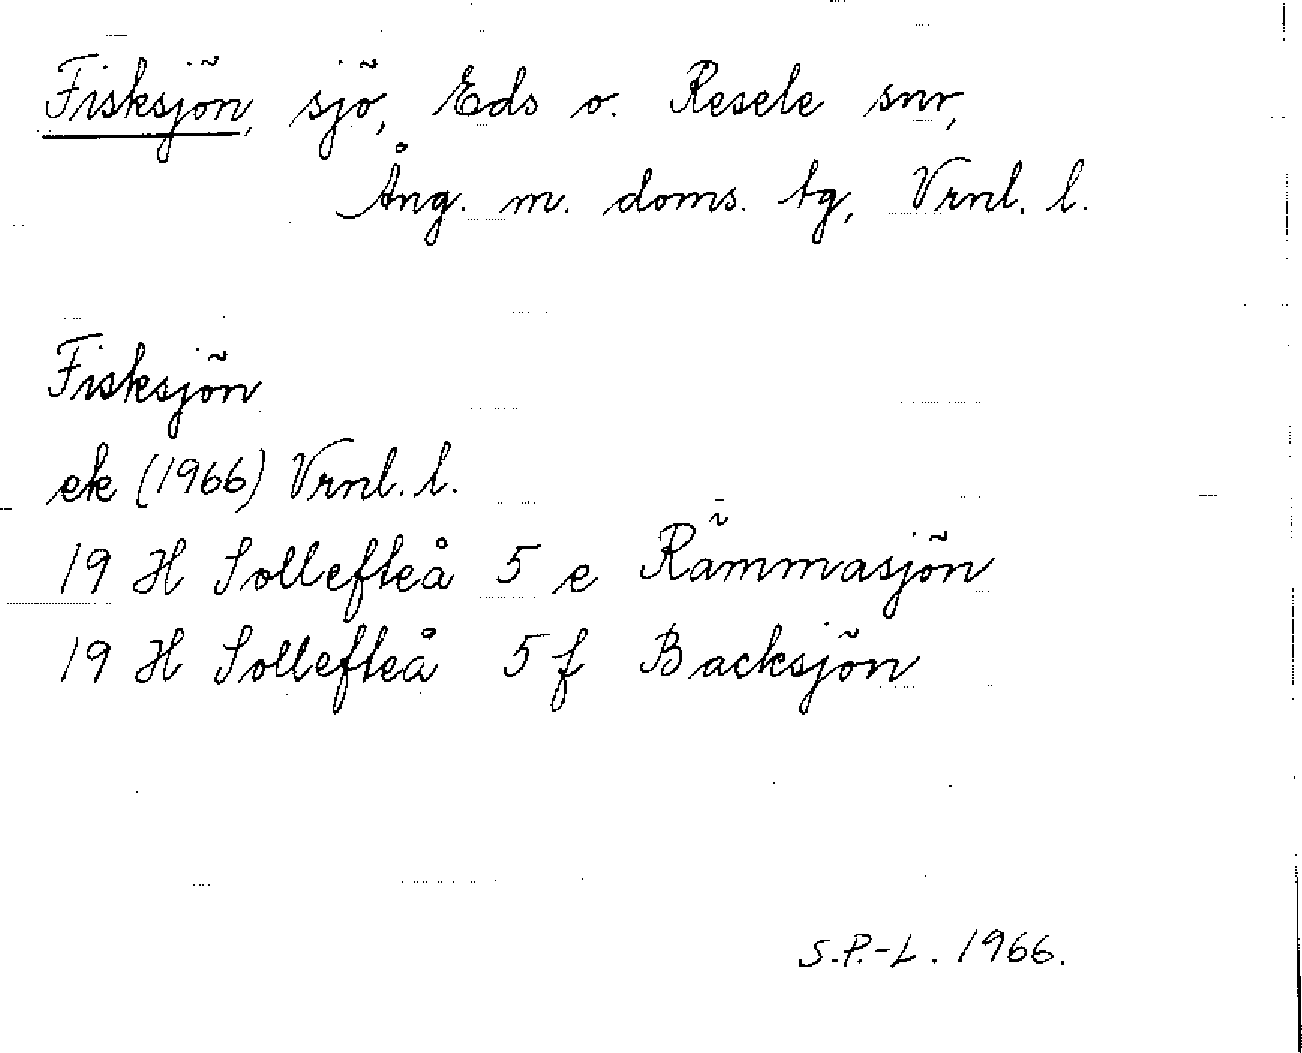 Fisksjön, sjö, Eds o. Resele snr,
Ång. m. doms. tg, Vrnl. l.
Fisksjön
ek (1966) Vrnl. l.
19 H Sollefteå 5 e Rämmasjön
19 H Sollefteå 5 f Backsjön
S.P.-L. 1966.